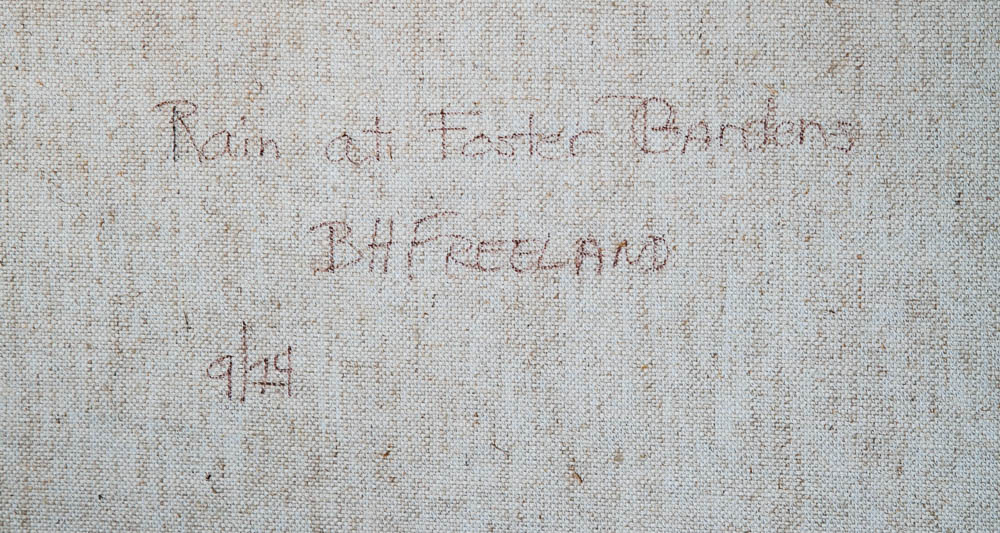 Rain at Foster Bardens
BH FREELAND
9/14